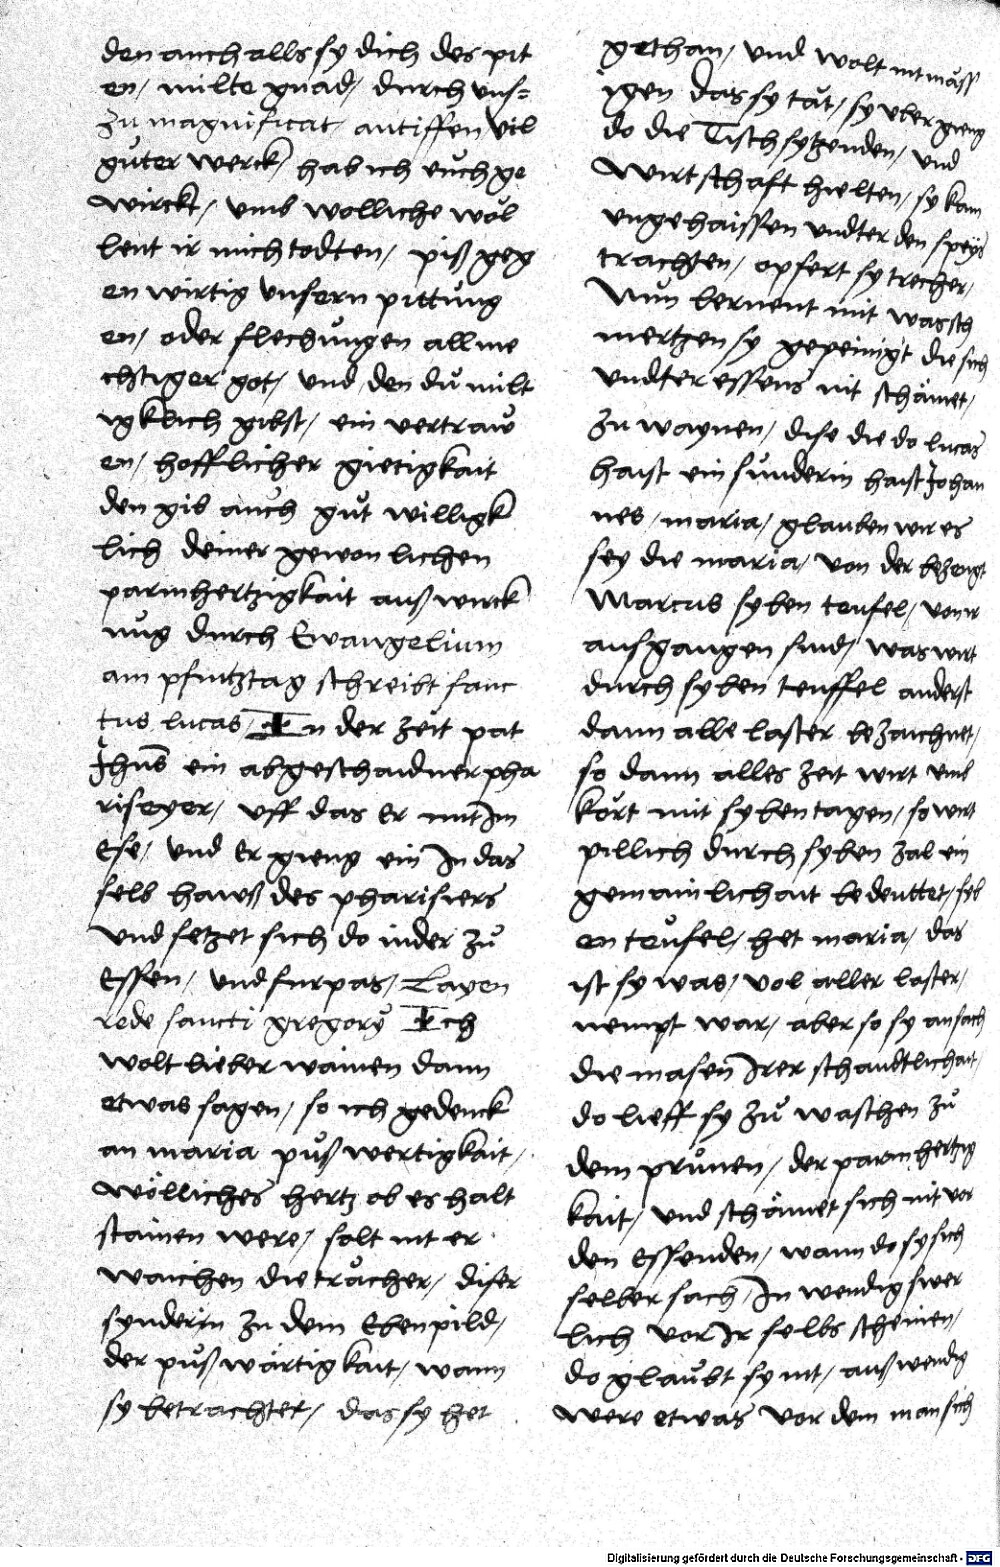 den auch alls sy dich des pit
en / milte gnad / durch uns=
zu magnificat antiffen Vil
guter werck / hab ich euch ge
wirckt / umb wolliche wol
lent ir mich todten / piß geg
en wirtig unsern pittung
en / oder flechungen allme
chtiger got / und den du milt
igklich gibst / ein vertraw
en / hofflicher gietigkait
den gib auch gut willigk
lich deiner gewonlichen
parmhertzigkait auß wirck
nug durch Ewangelium
am pfintztag schreibt sanc
tus lucas / In der zeit pat
Jhus ein abgeschaidner pha
riseyer / uff das er mit Im
Ese / und Er gieng ein In das
selb hauß des pharisiers
und setzet sich do inder zu
Essen / und furpas / Layen
rede sancti gregory Ich
wolt lieber wainen dann
etwas sagen / so ich gedenck
an maria puß wertigkait /
wölliches hertz ob es halt
stainen were / solt nit er
waichen die trächer / diser
synderin zu dem Ebenpild /
der puß wärtigkait / wann
sy betrachtet / das sy het
gethan / und wolt nit mäss
igen das sy tät / sy uber gieng
do die Tisch sytzenden / und
wirtschaft hielten / sy kam
ungehaissen undter den speys
trachten / opfert sy trecher /
Nun lernent mit was sch
mertzen sy gepeinigt die sich
undter essens nit schämet /
zu waynen / dise die do lucas
haist ein sunderin haist Johan
nes / maria / glauben wir es
sey die maria / von der bezeugt
Marcus syben teufel / von ir
aufgangen sind / was wirt
durch syben teuffel anderst
dann alle laster bezaichnet /
so dann alles zeit wirt umb
kört mit syben tagen / so wirt
pillich durch syben zal ein
gemainlichait bedeuttet / syb
en teufel / het maria / das
ist sy was / vol aller laster /
nempt war / aber so sy ansach
die masen Irer schandtlichait /
do lieff sy zu waschen zu
dem prunen / der parmhertzig
kait / und schämet sich nit vor
den Essenden / wann do sy sich
selber sach / In wendig swer
lich vor Ir selbs scheinen /
do glaubt sy nit / auß wendig
were etwas vor dem man sich
Digitalisierung gefördert durch die Deutsche Forschungsgemeinschaft - DFG